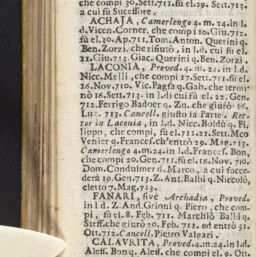 che compì 30. Sett. sù el. 29. Sett. 713.
a cui fù Successive
ACHAJA, Camerlengo 4. m. 24. in l.
d. Vicen. Corner, che compì 10. Giu. 712.
fù el. 30. Ap. 711. Tom. Anton. Querini q.
Ben. Zorzi, che rifiutò, in l. d. cui fù el.
21. Giu. 713. Giac. Querini q. Ben. Zorzi.
LACONIA, Proved. 4. m. 24. in l. d.
Nicc. Melli, che compì 17. Gen. 711. fù el.
16. Nov. 710. Vic. Pasta q. Gab. che termi-
nò 16. Sett. 713. in l. di cui fù el. 22. Gen.
712. Ferrigo Badoer q. Zu. che giurò 16.
Lu. 713. Cancell. giusto la Parte. Ret-
tor in Laconia, in l. d. Nicc. Boldù q. Fi-
lippo, che compì, fù el. 711. 21. Sett. Mco
Venier q. Francesf. ch'entrò 29. Mag. 713.
Camerlengo 4. m. 24. in l. d. Francesf. Bon,
che compì 20. Gen. 711. fù el. 16. Nov. 710.
Dom. Condulmer d. Marco, a cui succe-
derà 19. Gen. 713. Z. Ant. Balbi q. Niccolò,
eletto 7. Mag. 713.
FANARI, sivè Arcbadia, Proved.
in l. d. Z. And. Grioni q. Piero, che com-
pì, fù el. 8. Feb. 711. Marchiò Balbi q.
Steff. che giurò 20. Feb. 711. ed entrò 31.
Ott. 712. Cancell. Pietro Valgari
CALAVRITA, Proved. 4. m. 24. in l. d.
Aless. Bon q. Aless. che compì el. 9. Ott.